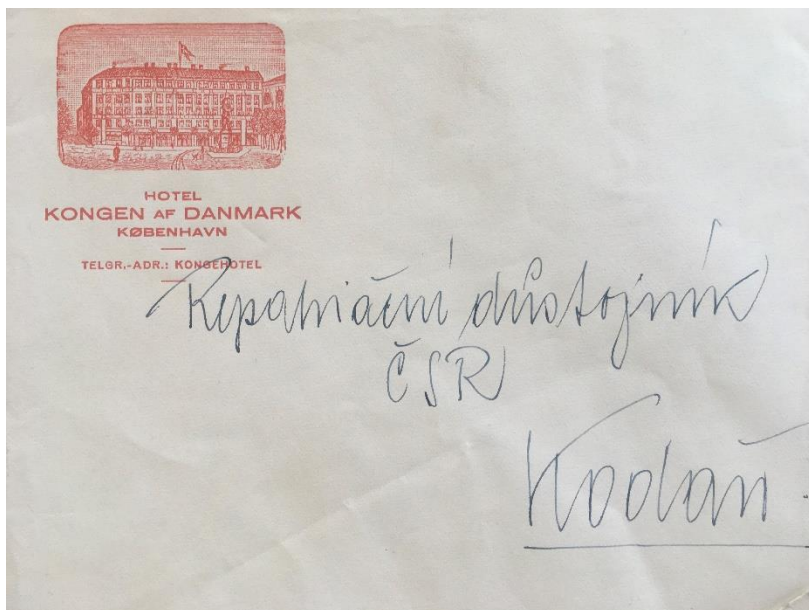 HOTEL
KONGEN AF DANMARK
KØBENHAVN
TELGR.-ADR.: KONGEHOTEL
Repatriační důstojník
ČSR
Kodaň.